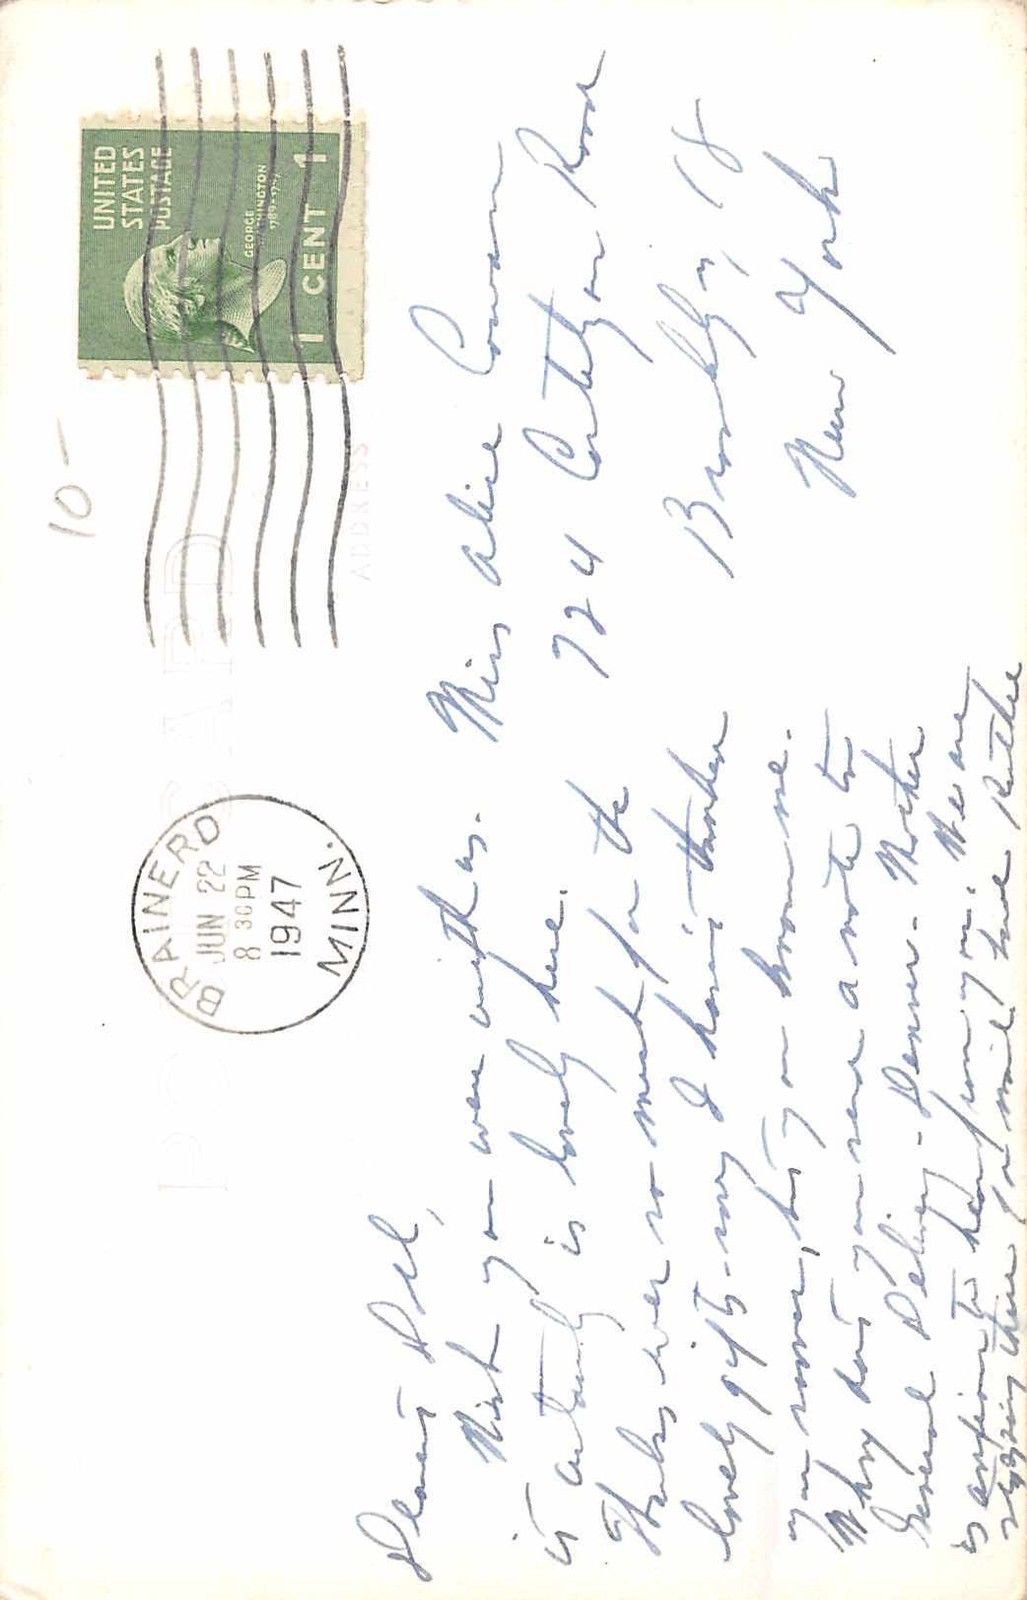 10 -
UNITED
STATES
POSTAGE
GEORGE
WASHINGTON
1789-1797
1 CENT 1
POST CARD
ADDRESS
BRAINERD
JUN 22
8 30 PM
1947
MINN.
Dearest Doll,
Wish you were with us.
it actually is lovely here.
Thanks ever so much for the
lovely gift - sorry I haven't thanked
you sooner, but you know me.
Why don't you send a note to
General Delivery - Denver - Mother
is anxious to hear from you. We are
stopping there for mail. Love Ruthie
Miss Alice Convam
724 Cortelyou Road
Brooklyn, 18
New York